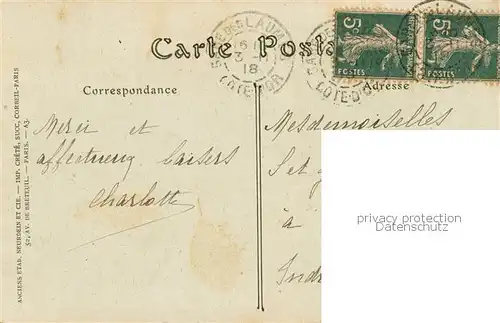 Carte Posta
5c
5c
POSTES
POSTES
18
CÔTE-D'OR
CÔTE-D'O
Correspondance
Adresse
Merci et
affectueux baisers
Charlotte
Mesdemoiselles
S et
à
Indr
privacy protection
Datenschutz
ANCIENS ETAB. NEURDEIN ET CIE. — IMP. CRÉTÉ, SUCC. CORBEIL-PARIS
52, AV. DE BRETEUIL. — PARIS. — A3.